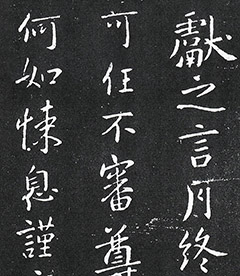 獻之言月終
可任不審尊
何如悚息謹